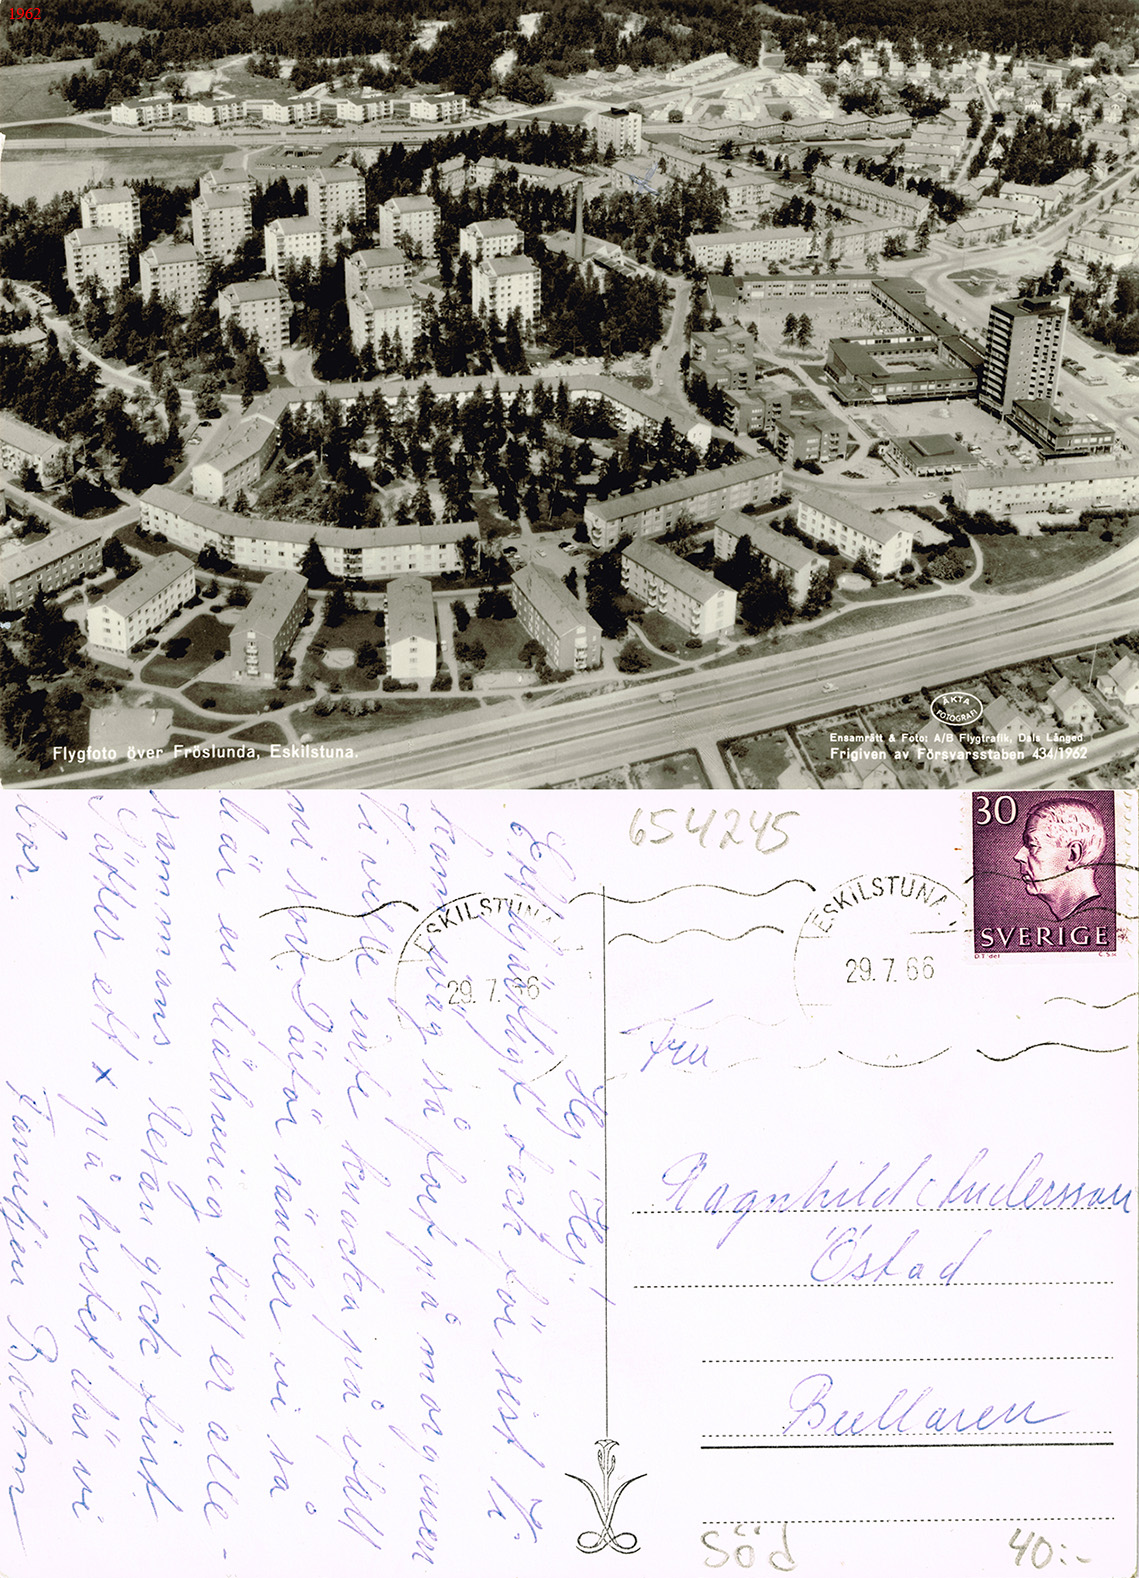 1962
Flygfoto över Fröslunda, Eskilstuna.
ÄKTA
FOTOGRAFI
Ensamrätt & Foto: A/B Flygtrafik, Dals Långed
Frigiven av Försvarsstaben 434/1962
654245
30
SVERIGE
ESKILSTUNA 1
29. 7. 66
ESKILSTUNA 1
29. 7. 66
Hej! Hej!
Ett hjärtligt tack för sist. Vi
kom iväg så fort på morgonen
Vi ville inte knacka på ifall
ni sov. Därför sänder vi så
här en hälsning till er alle-
sammans. Resan gick fint.
Sätter ett x på kortet där vi
bor.
Familjen Bohm
Fru
Ragnhild Andersson
Östad
Bullaren
SÖD
40:-